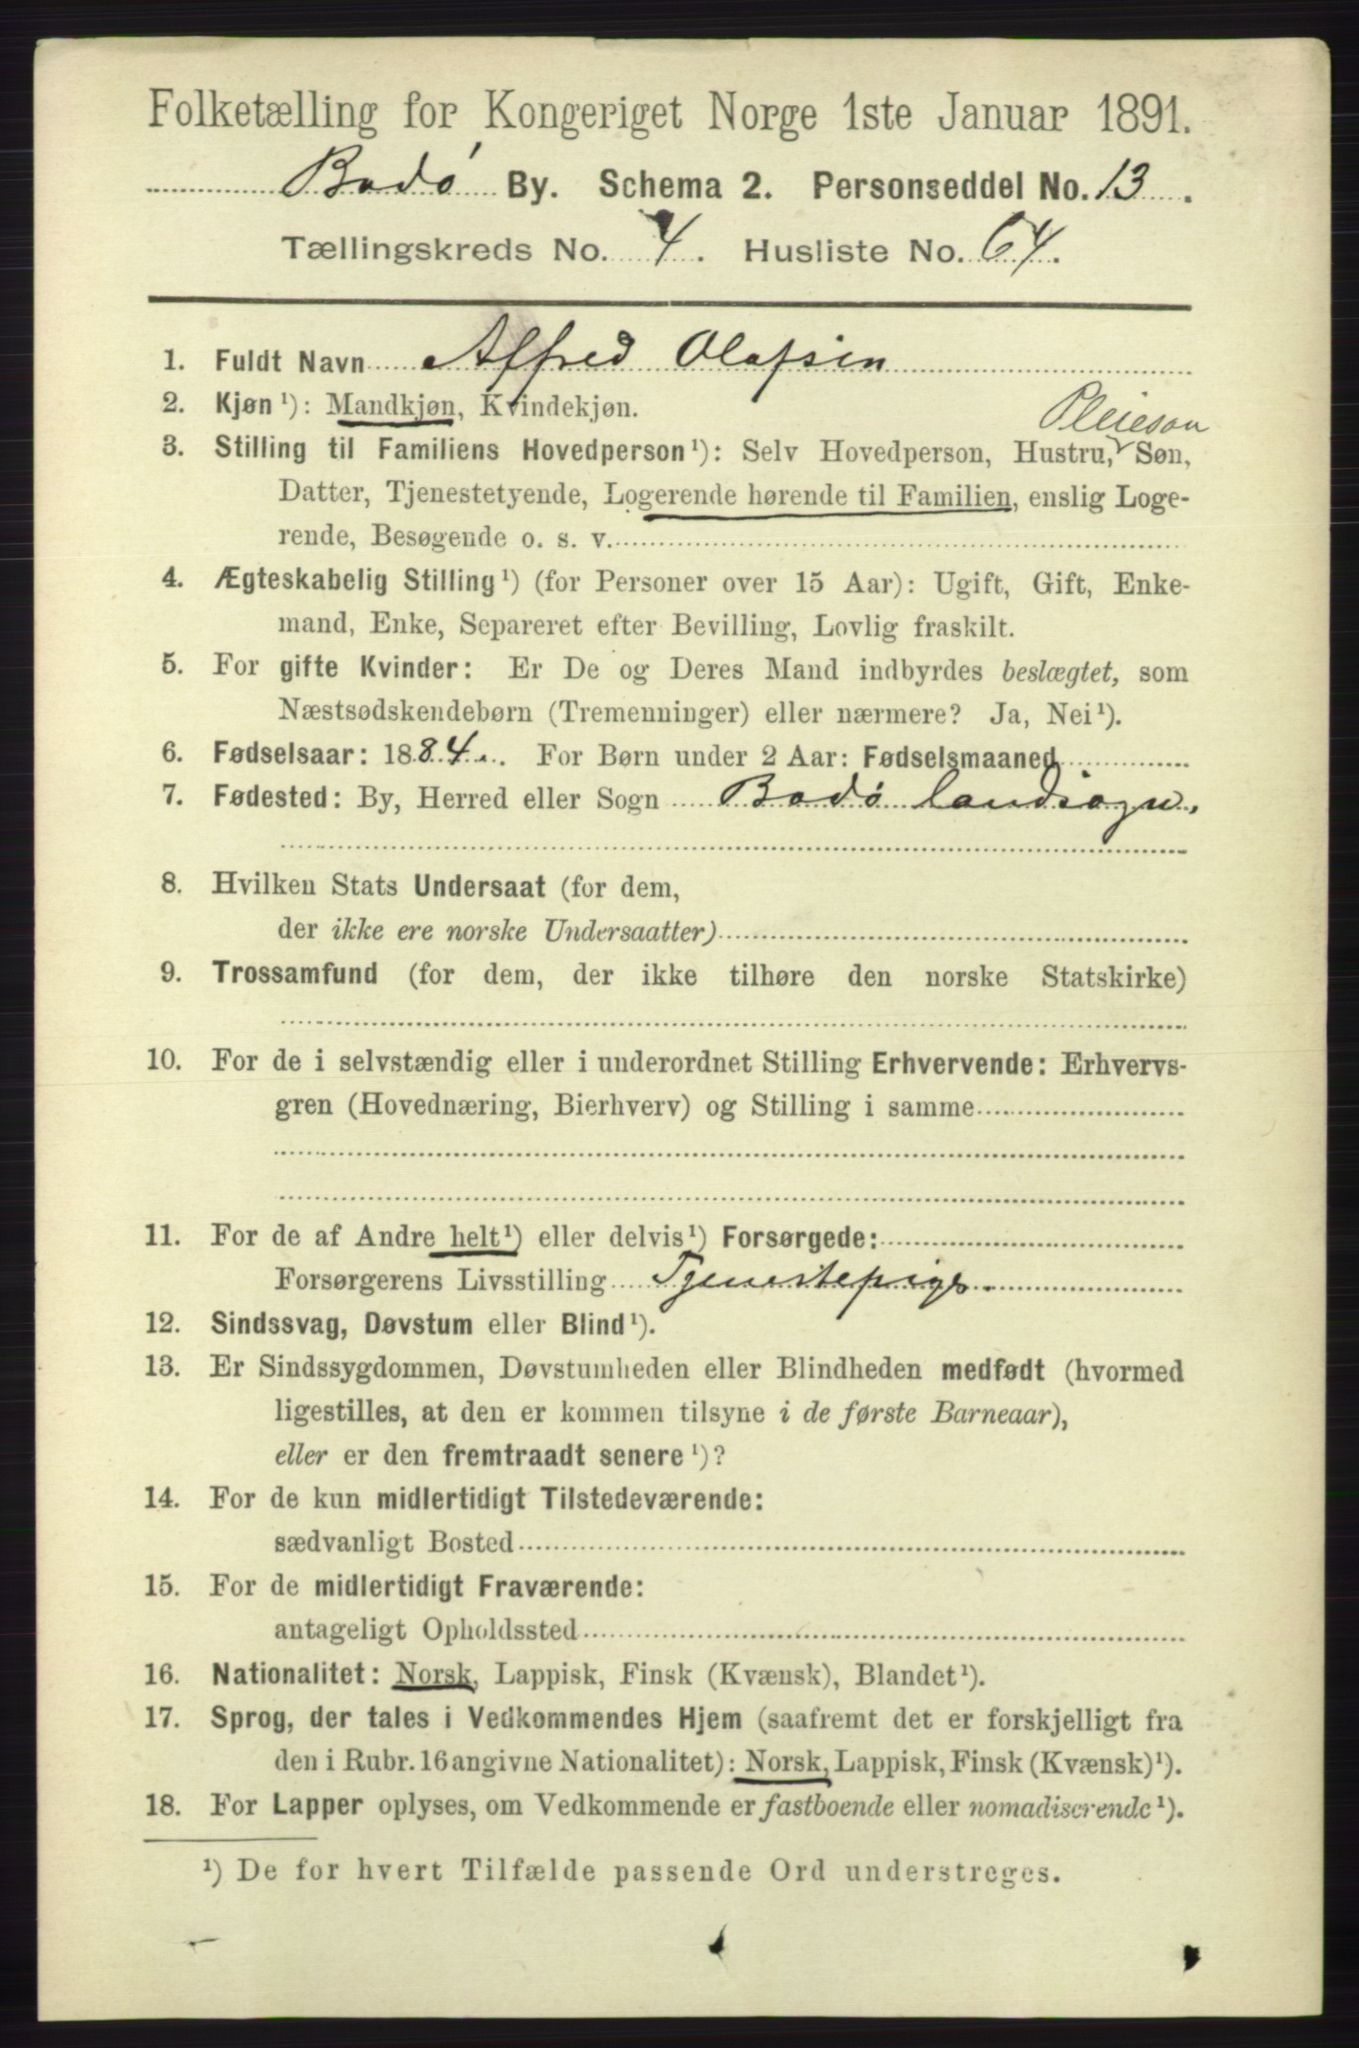 Folketælling for Kongeriget Norge 1ste Januar 1891.
Bodø By. Schema 2. Personseddel No. 13.
Tællingskreds No. 4. Husliste No. 64.
1. Fuldt Navn Alfred Olafsen
2. Kjøn¹): Mandkjøn, Kvindekjøn.
Pleieson
3. Stilling til Familiens Hovedperson¹): Selv Hovedperson, Hustru, Søn,
Datter, Tjenestetyende, Logerende hørende til Familien, enslig Loge-
rende, Besøgende o. s. v.
4. Ægteskabelig Stilling¹) (for Personer over 15 Aar): Ugift, Gift, Enke-
mand, Enke, Separeret efter Bevilling, Lovlig fraskilt.
5. For gifte Kvinder: Er De og Deres Mand indbyrdes beslægtet, som
Næstsødskendebørn (Tremenninger) eller nærmere? Ja, Nei¹).
6. Fødselsaar: 1884. For Børn under 2 Aar: Fødselsmaaned
7. Fødested: By, Herred eller Sogn Bodø landsogn.
8. Hvilken Stats Undersaat (for dem,
der ikke ere norske Undersaatter)
9. Trossamfund (for dem, der ikke tilhøre den norske Statskirke)
10. For de i selvstændig eller i underordnet Stilling Erhvervende: Erhvervs-
gren (Hovednæring, Bierhverv) og Stilling i samme
11. For de af Andre helt¹) eller delvis¹) Forsørgede:
Forsørgerens Livsstilling Tjenestepige.
12. Sindssvag, Døvstum eller Blind¹).
13. Er Sindssygdommen, Døvstumheden eller Blindheden medfødt (hvormed
ligestilles, at den er kommen tilsyne i de første Barneaar),
eller er den fremtraadt senere¹)?
14. For de kun midlertidigt Tilstedeværende:
sædvanligt Bosted
15. For de midlertidigt Fraværende:
antageligt Opholdssted
16. Nationalitet: Norsk, Lappisk, Finsk (Kvænsk), Blandet¹).
17. Sprog, der tales i Vedkommendes Hjem (saafremt det er forskjelligt fra
den i Rubr. 16 angivne Nationalitet): Norsk, Lappisk, Finsk (Kvænsk)¹).
18. For Lapper oplyses, om Vedkommende er fastboende eller nomadiserende¹).
¹) De for hvert Tilfælde passende Ord understreges.